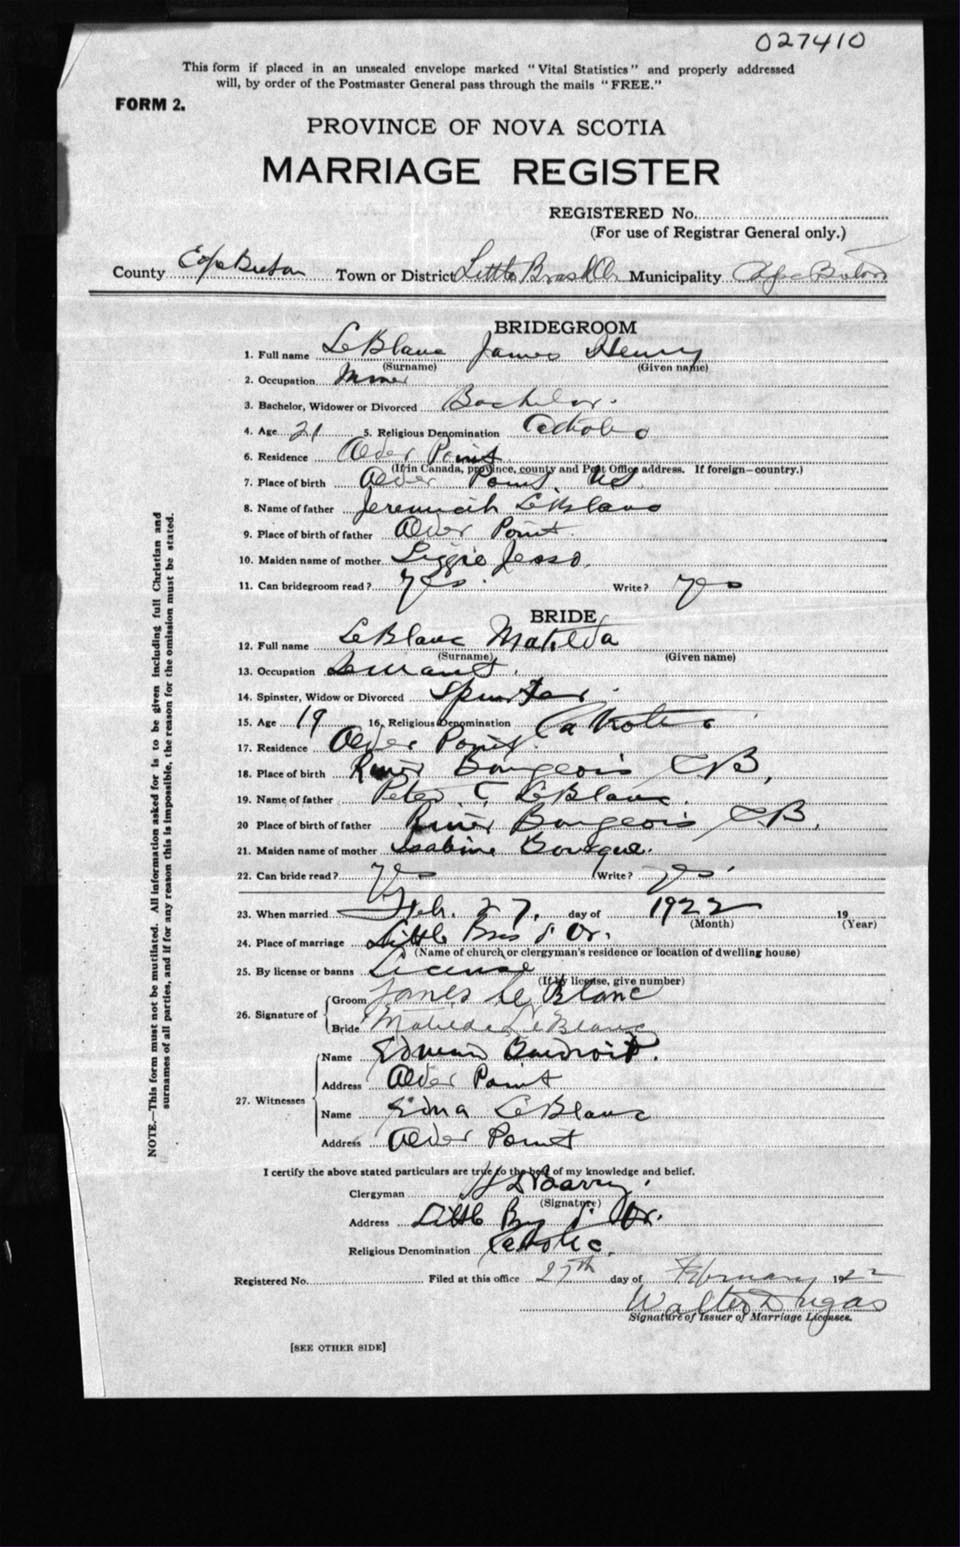 027410
This form if placed in an unsealed envelope marked "Vital Statistics" and properly addressed
will, by order of the Postmaster General pass through the mails "FREE."
FORM 2.
PROVINCE OF NOVA SCOTIA
MARRIAGE REGISTER
REGISTERED No.
(For use of Registrar General only.)
County Cape Breton Town or District Little Bras d'Or Municipality Cape Breton
BRIDEGROOM
1. Full name LeBlanc James Henry
(Surname) (Given name)
2. Occupation Miner
3. Bachelor, Widower or Divorced Bachelor.
4. Age 21 5. Religious Denomination Catholic
6. Residence Alder Point
(If in Canada, province, county and Post Office address. If foreign—country.)
7. Place of birth Alder Point, NS.
8. Name of father Jeremiah LeBlanc
9. Place of birth of father Alder Point.
10. Maiden name of mother Lizzie Jesso.
11. Can bridegroom read? Yes. Write? Yes
BRIDE
12. Full name LeBlanc Matilda
(Surname) (Given name)
13. Occupation Servant.
14. Spinster, Widow or Divorced Spinster.
15. Age 19 16. Religious Denomination Catholic
17. Residence Alder Point.
18. Place of birth River Bourgeois CB,
19. Name of father Peter C. LeBlanc.
20 Place of birth of father River Bourgeois C.B.
21. Maiden name of mother Isabine Bourque.
22. Can bride read? Yes Write? Yes.
23. When married Feb. 27, day of 1922 19
(Month) (Year)
24. Place of marriage Little Bras d'Or.
(Name of church or clergyman's residence or location of dwelling house)
25. By license or banns License
(If by license, give number)
26. Signature of
Groom James Le Blanc
Bride Matilda LeBlanc
27. Witnesses
Name Edward Boudroit.
Address Alder Point
Name Edna LeBlanc
Address Alder Point
I certify the above stated particulars are true to the best of my knowledge and belief.
Clergyman Barry.
(Signature)
Address Little Bras d'Or.
Religious Denomination Catholic.
Registered No. Filed at this office 27th day of February 1922
Walter Dugas
Signature of Issuer of Marriage Licenses.
[SEE OTHER SIDE]
NOTE.—This form must not be mutilated. All information asked for is to be given including full Christian and
surnames of all parties, and if for any reason this is impossible, the reason for the omission must be stated.